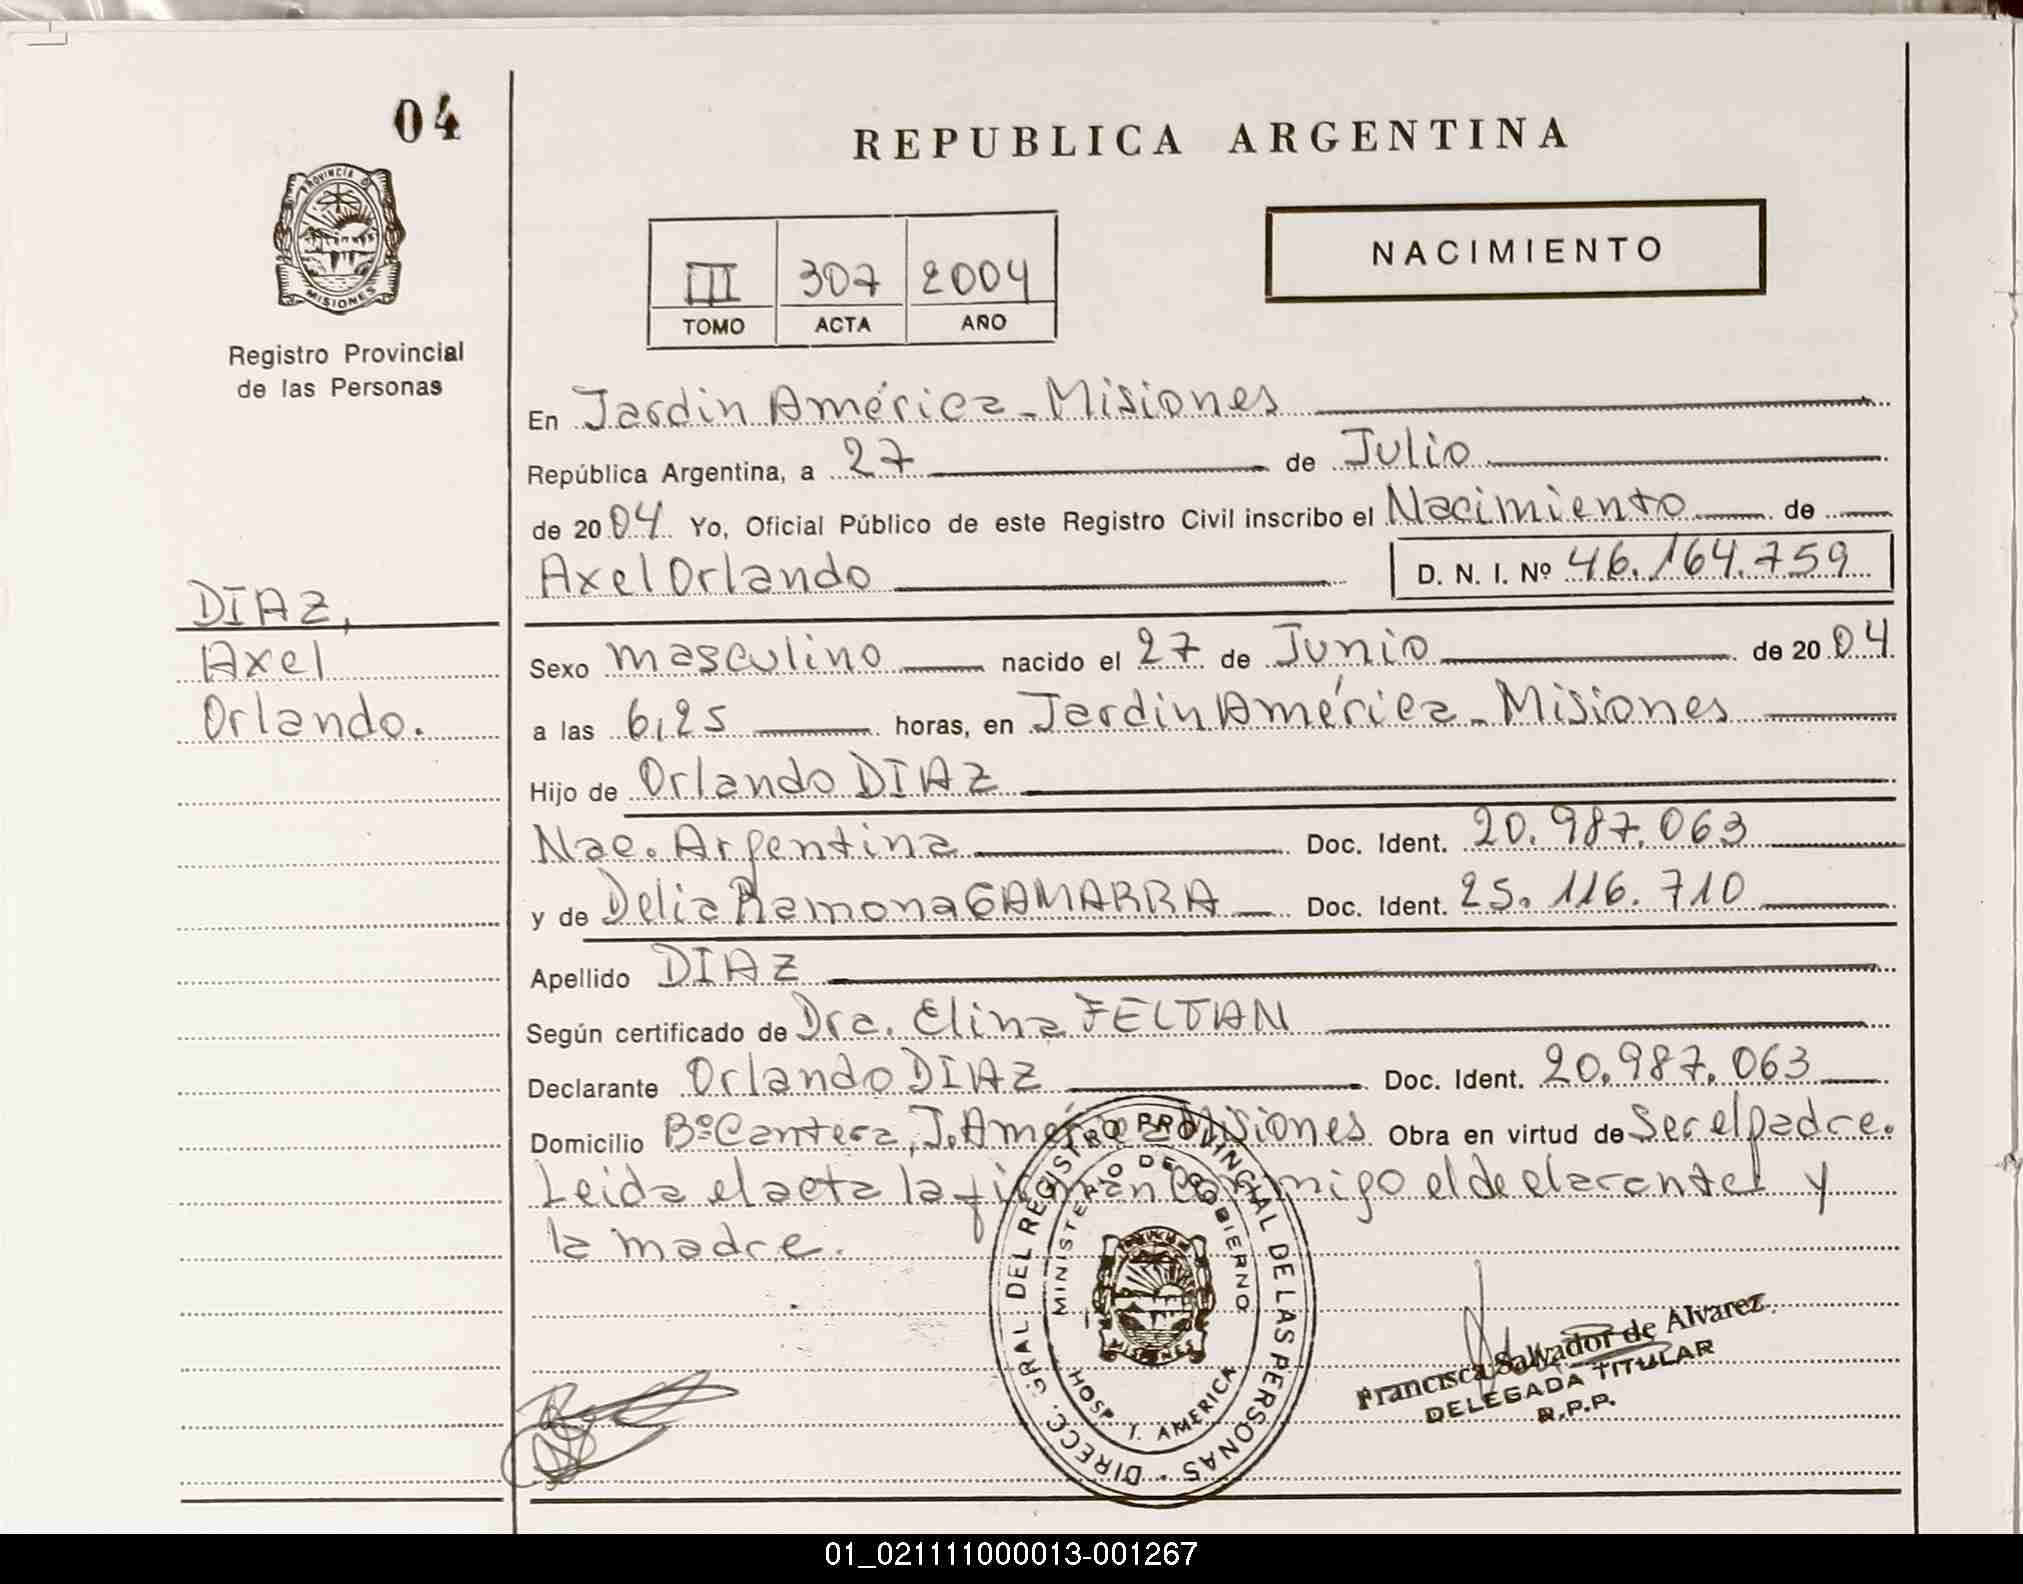 04
REPUBLICA ARGENTINA
PROVINCIA D
MISIONES
NACIMIENTO
III 307 2004
TOMO ACTA AÑO
Registro Provincial
de las Personas
En Jardin América - Misiones
República Argentina, a 27 de Julio
de 2004 Yo, Oficial Público de este Registro Civil inscribo el Nacimiento de
Axel Orlando D. N. I. Nº 46.164.759
DIAZ,
Axel
Orlando.
Sexo masculino nacido el 27 de Junio de 2004
a las 6,25 horas, en Jardin América - Misiones
Hijo de Orlando DIAZ
Nac. Argentina Doc. Ident. 20.987.063
y de Delia Ramona GAMARRA Doc. Ident. 25.116.710
Apellido DIAZ
Según certificado de Dra. Elina FELTAN
Declarante Orlando DIAZ Doc. Ident. 20.987.063
Domicilio Bº Cantera, J. América Misiones Obra en virtud de Ser el padre.
Leida el acta la firman conmigo el declarante y
la madre.
DIRECC. GRAL DEL REGISTRO PROVINCIAL DE LAS PERSONAS
MINISTERIO DE GOBIERNO
MISIONES
HOSP. J. AMERICA
Francisca Salvador de Alvarez
DELEGADA TITULAR
R.P.P.
01_021111000013-001267